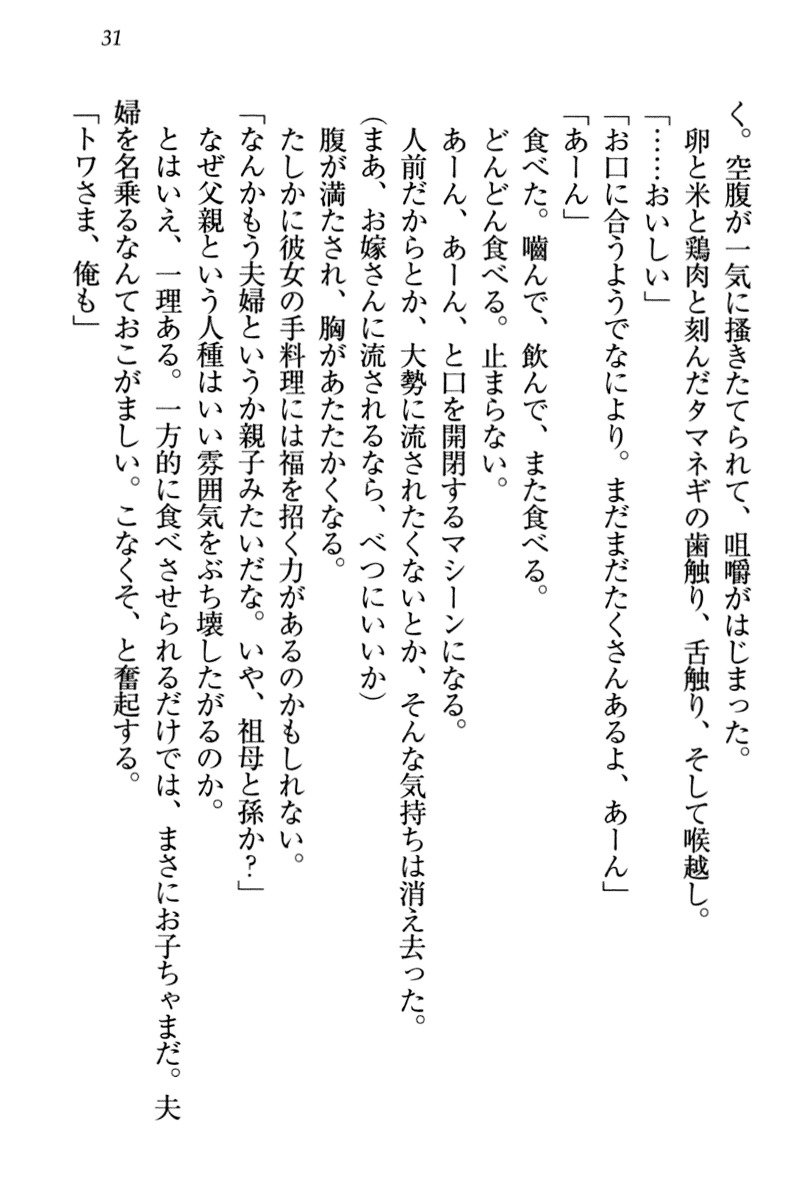 31
く。空腹が一気に掻きたてられて、咀嚼がはじまった。
卵と米と鶏肉と刻んだタマネギの歯触り、舌触り、そして喉越し。
「……おいしい」
「お口に合うようでなにより。まだまだたくさんあるよ、あーん」
「あーん」
食べた。嚙んで、飲んで、また食べる。
どんどん食べる。止まらない。
あーん、あーん、と口を開閉するマシーンになる。
人前だからとか、大勢に流されたくないとか、そんな気持ちは消え去った。
(まあ、お嫁さんに流されるなら、べつにいいか)
腹が満たされ、胸があたたかくなる。
たしかに彼女の手料理には福を招く力があるのかもしれない。
「なんかもう夫婦というか親子みたいだな。いや、祖母と孫か?」
なぜ父親という人種はいい雰囲気をぶち壊したがるのか。
とはいえ、一理ある。一方的に食べさせられるだけでは、まさにお子ちゃまだ。夫
婦を名乗るなんておこがましい。こなくそ、と奮起する。
「トワさま、俺も」